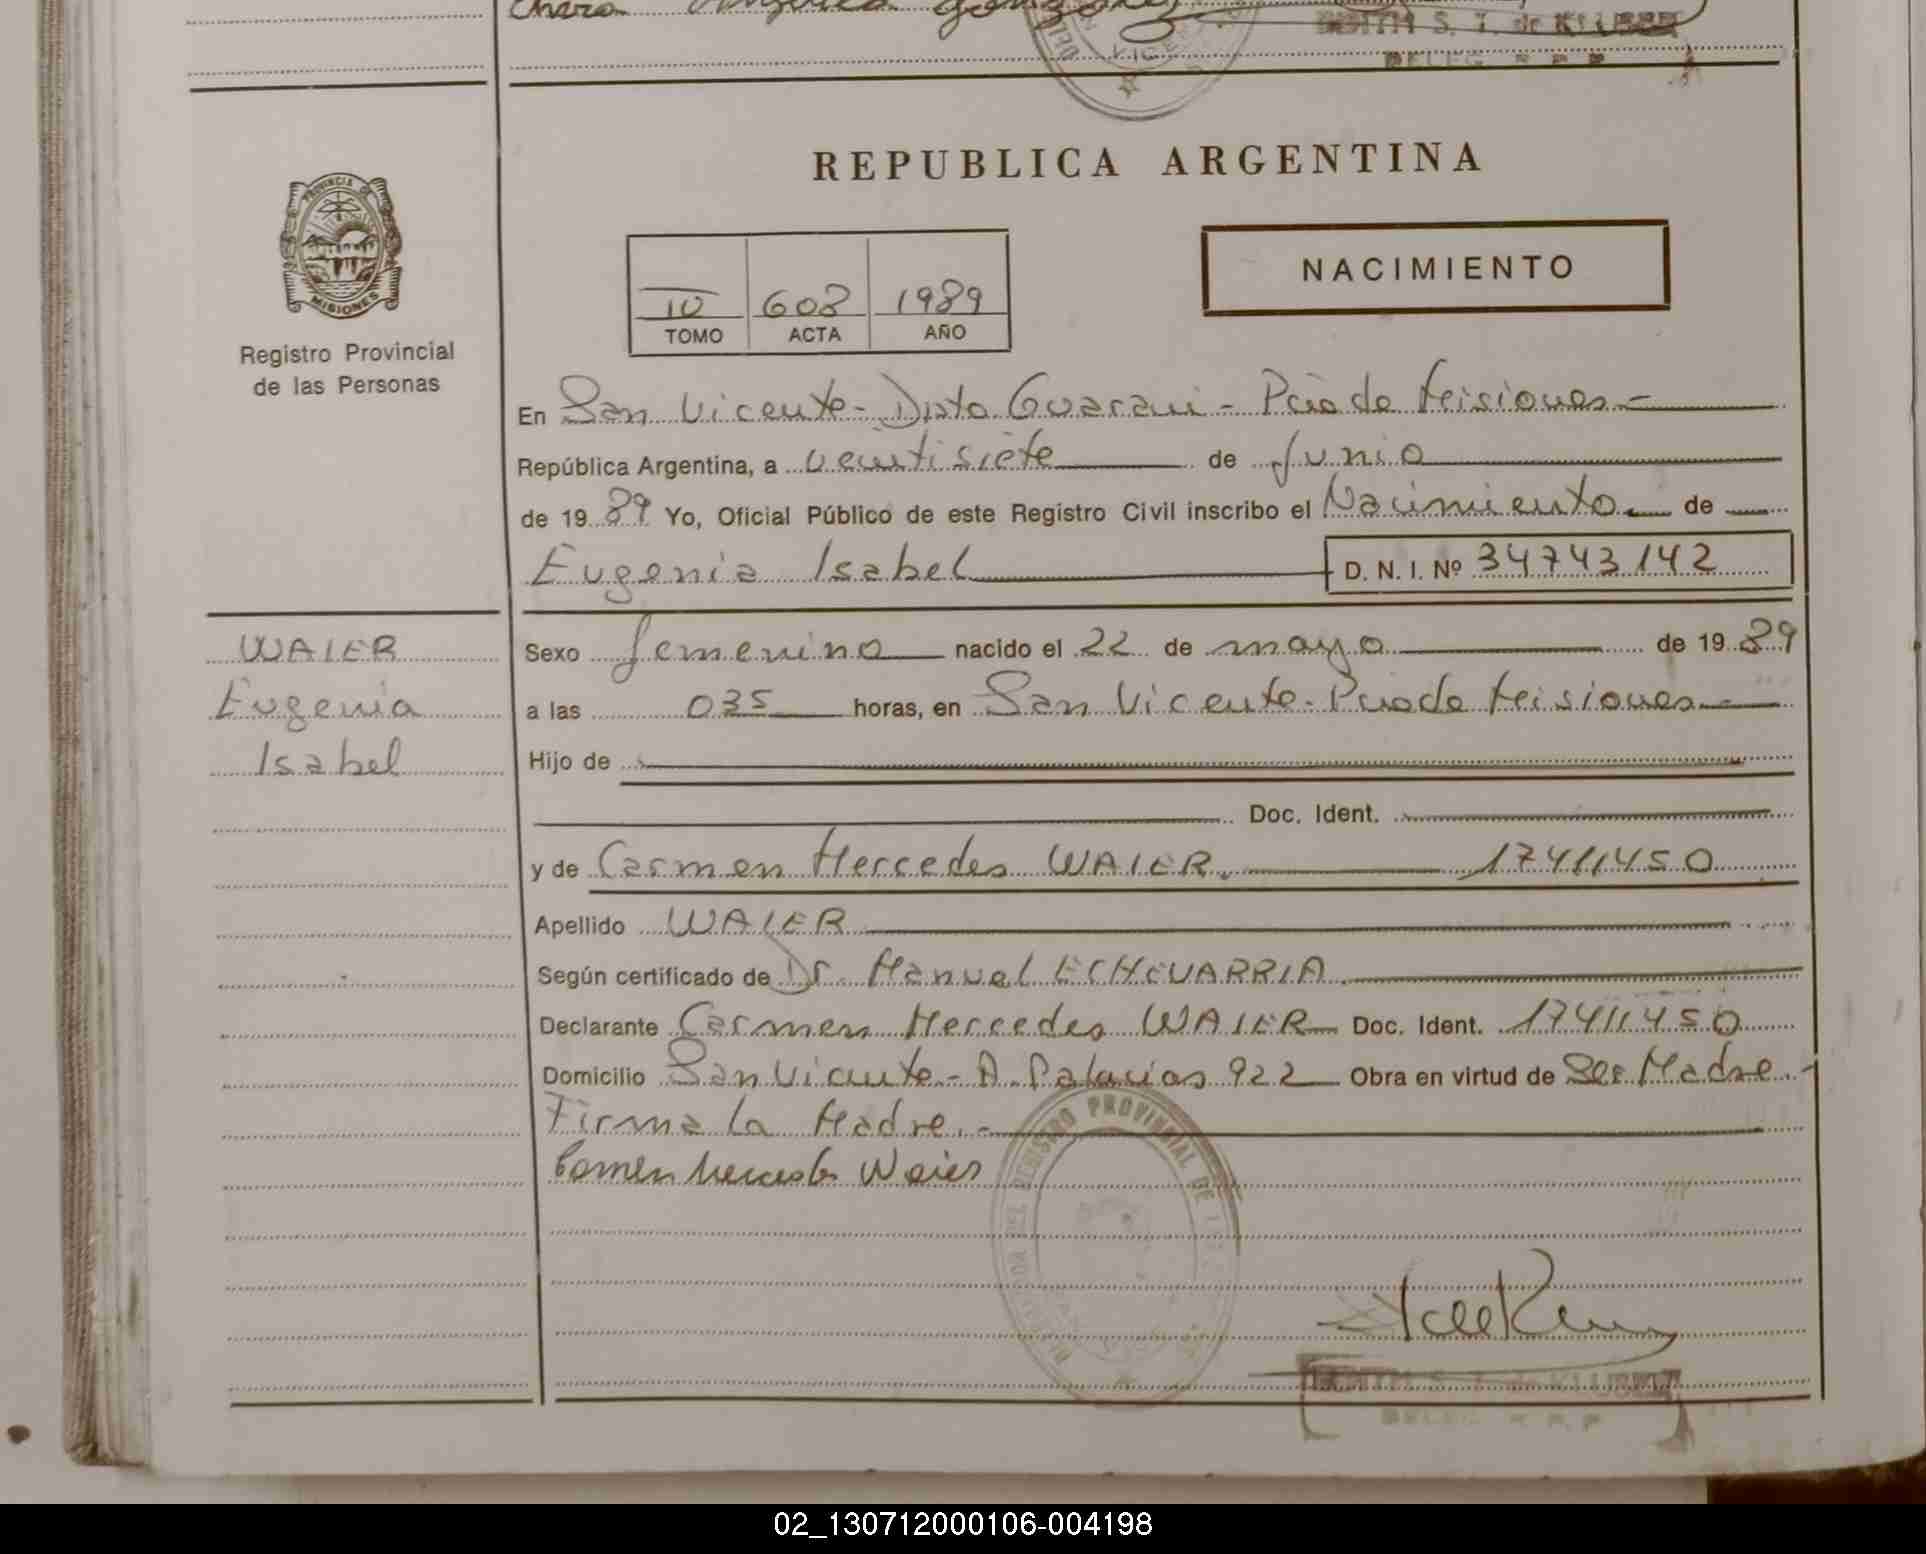 REPUBLICA ARGENTINA
PROVINCIA DE
MISIONES
Registro Provincial
de las Personas
NACIMIENTO
603 1989
TOMO ACTA AÑO
En San Vicente - Dpto Guarani - Pcia de Misiones -
República Argentina, a veintisiete de Junio
de 1989 Yo, Oficial Público de este Registro Civil inscribo el Nacimiento de
Eugenia Isabel D. N. I. Nº 34743142
WAIER
Eugenia
Isabel
Sexo femenino nacido el 22 de mayo de 1989
a las 035 horas, en San Vicente - Pcia de Misiones -
Hijo de
Doc. Ident.
y de Carmen Mercedes WAIER. 17411450
Apellido WAIER
Según certificado de Dr. Manuel ECHEVARRIA
Declarante Carmen Mercedes WAIER Doc. Ident. 17411450
Domicilio San Vicente - A. Palacios 922 Obra en virtud de Ser Madre. -
Firma la Madre. -
Carmen Mercedes Waier
REGISTRO PROVINCIAL DE
S. T. de
DELEG. R. P. P.
02_130712000106-004198